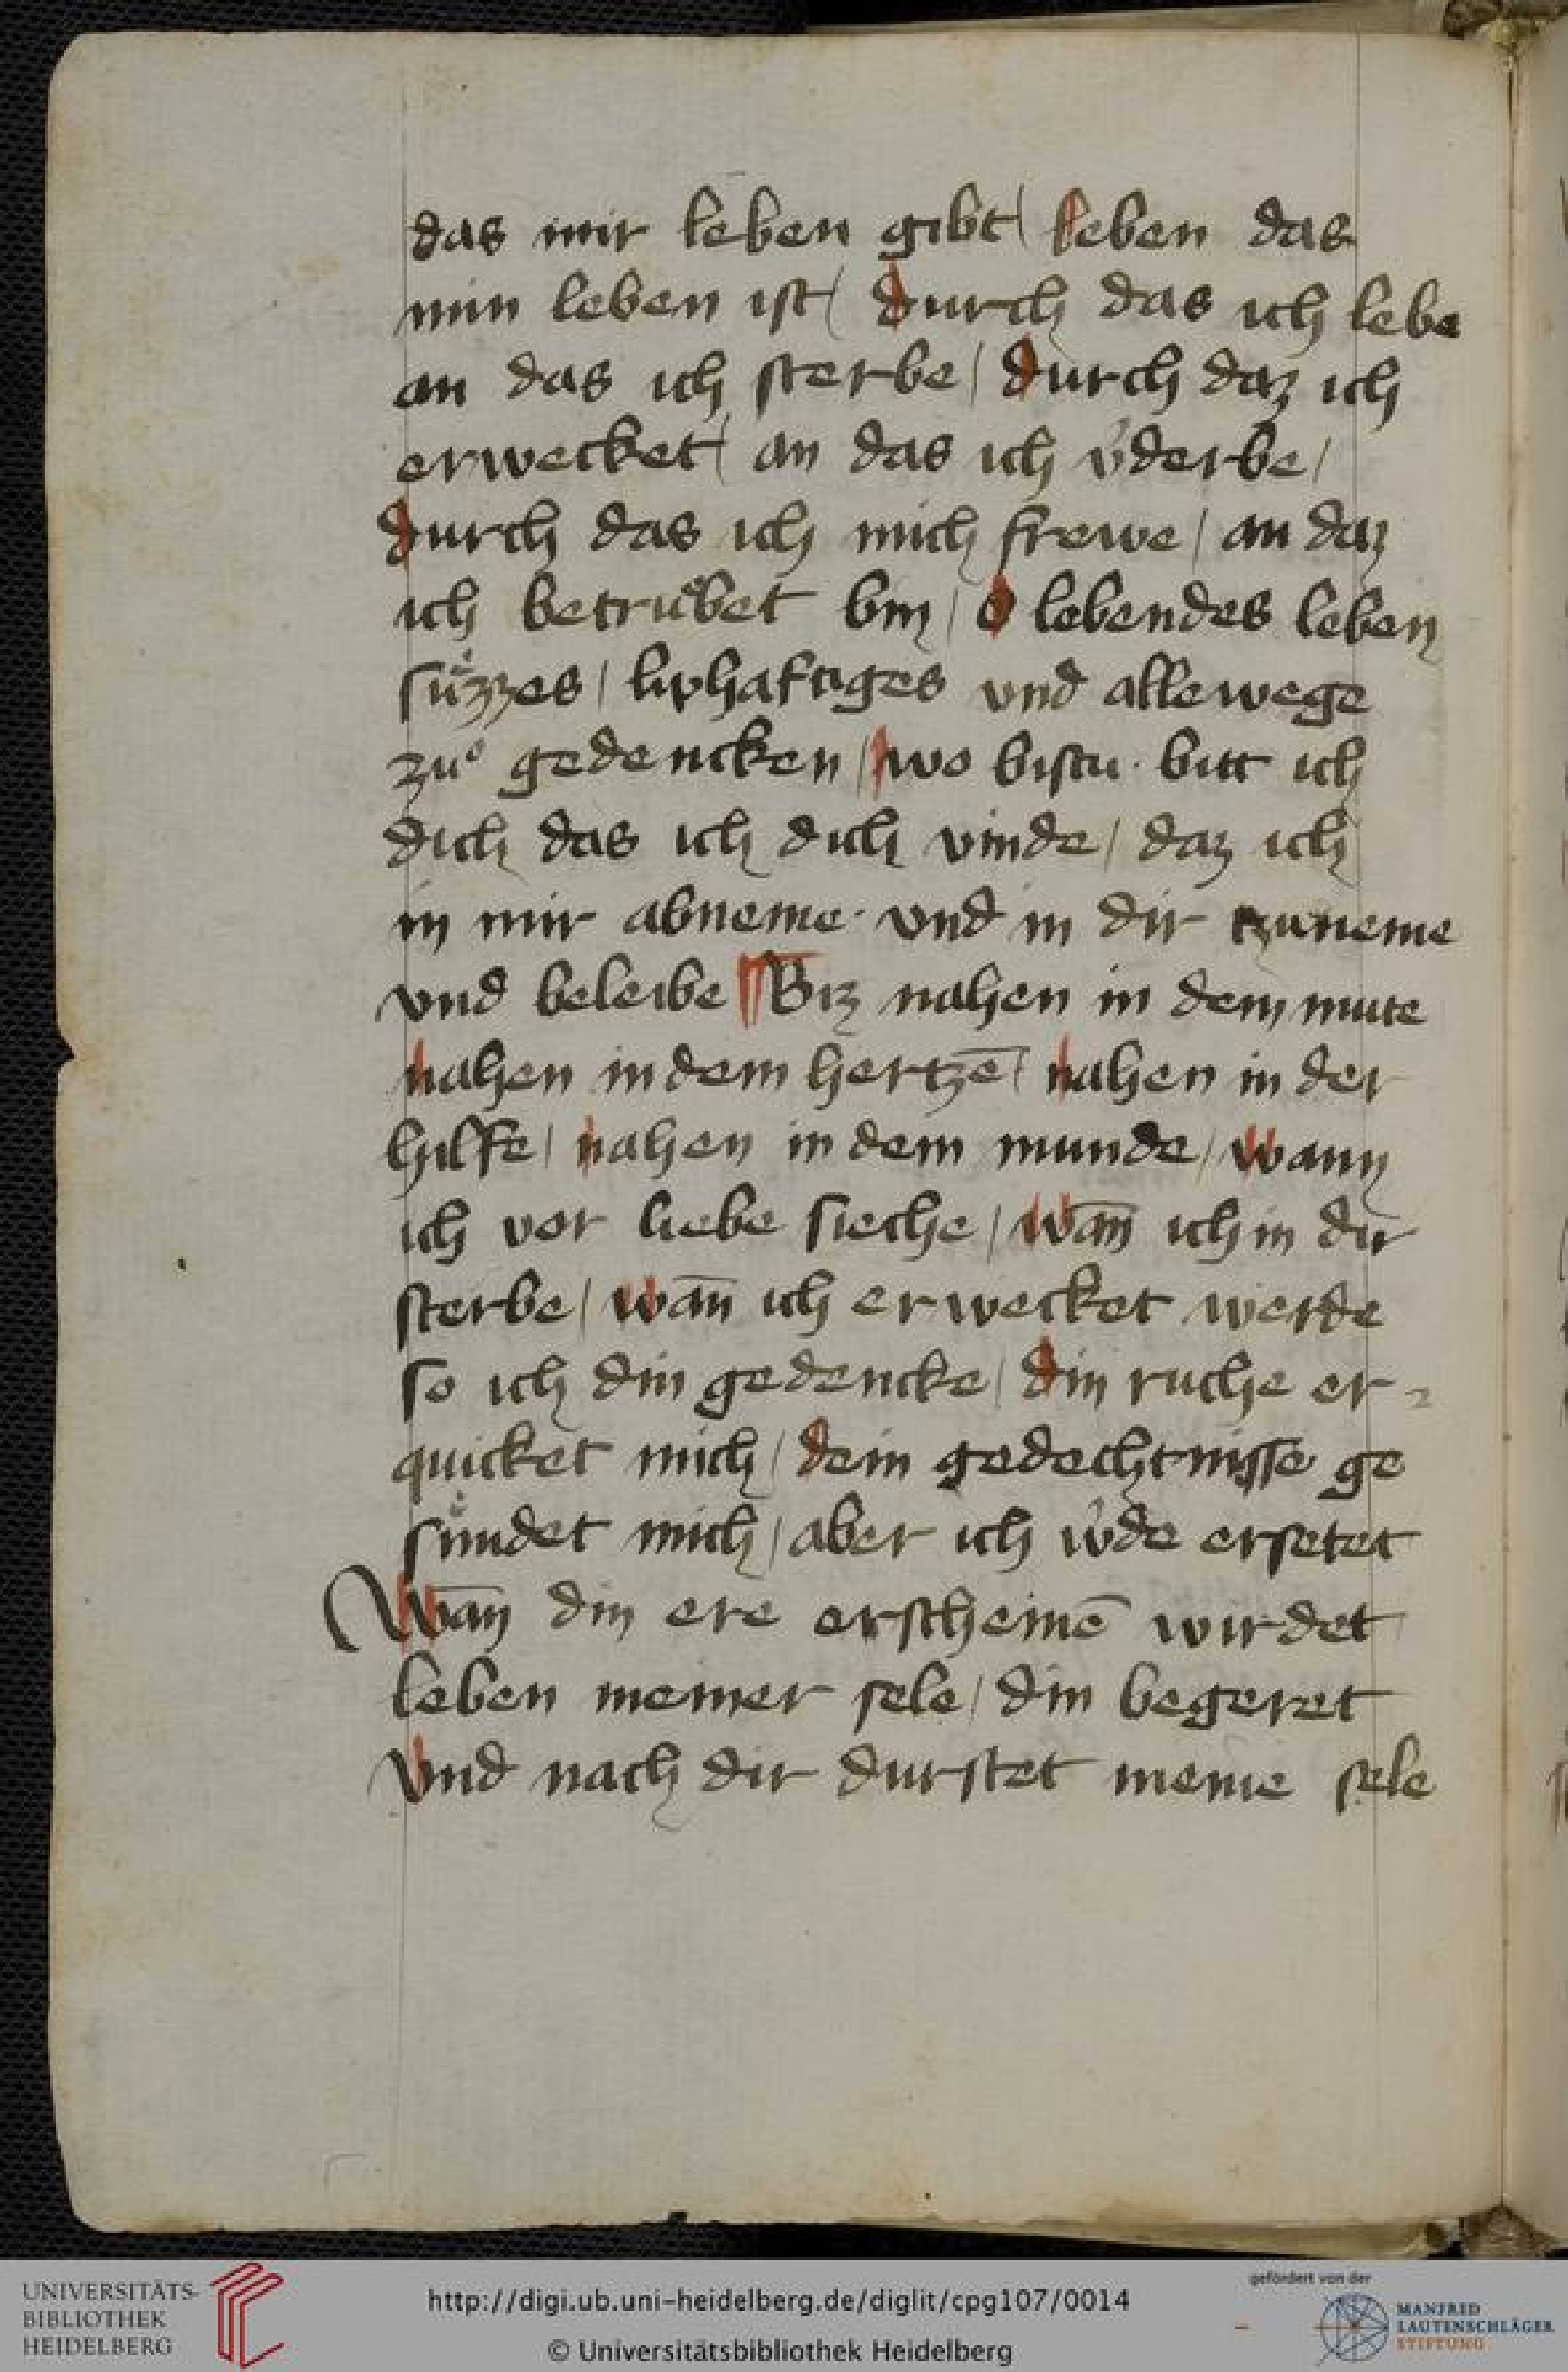 das mir leben gibt / leben das
min leben ist / durch das ich lebe
an das ich sterbe / durch daz ich
erwecket / an das ich v̓derbe /
durch das ich mich frewe / an daz
ich betruͤbet bin / O lebendes leben
suͤzzes / liphaftiges vnd allewege
zuͦ gedencken / wo bistu · bitt ich
dich das ich dich vinde / daz ich
in mir abneme · vnd in dir zuneme
vnd beleibe ¶ Biz nahen in dem mute
nahen in dem hertzē / nahen in der
hilffe / nahen in dem munde / wann
ich vor liebe sieche / wan̄ ich in dir
sterbe / wan̄ ich erwecket werde
so ich din gedencke / din ruche er-
quicket mich / dein gedechtnisse ge
suͤndet mich / aber ich w̓de ersetet
Wan̄ din ere erscheinē wirdet
leben meiner sele / din begeret
vnd nach dir durstet meine sele
UNIVERSITÄTS-
BIBLIOTHEK
HEIDELBERG
http://digi.ub.uni-heidelberg.de/diglit/cpg107/0014
© Universitätsbibliothek Heidelberg
gefördert von der
MANFRED
LAUTENSCHLÄGER
STIFTUNG